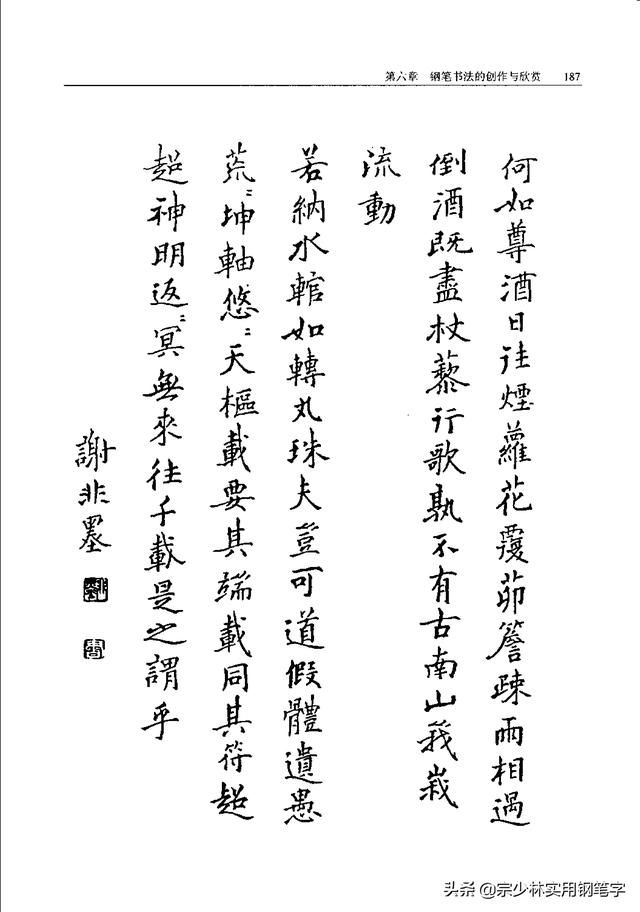 第六章 钢笔书法的创作与欣赏 187
何如尊酒日往煙蘿花覆茆簷疎雨相過
倒酒既盡杖藜行歌孰不有古南山峩峩
流動
若納水輨如轉丸珠夫豈可道假體遺愚
荒〻坤軸悠〻天樞載要其端載同其符超
超神明返〻冥無來往千載是之謂乎
謝非墨
头条 @宗少林实用钢笔字